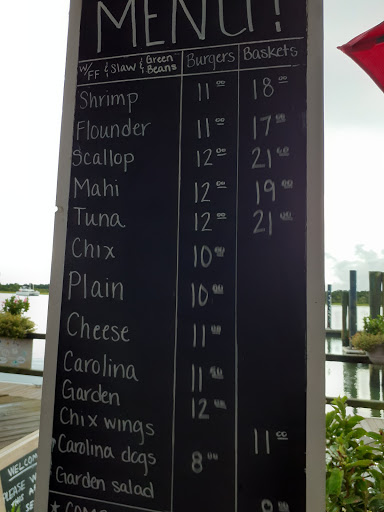 MENU!
W/FF & Slaw & Green Beans Burgers Baskets
Shrimp 11 00 18 00
Flounder 11 00 17 00
Scallop 12 00 21 00
Mahi 12 00 19 00
Tuna 12 00 21 00
Chix 10 00
Plain 10 00
Cheese 11 00
Carolina 11 50
Garden 12 00
Chix wings 11 00
Carolina dogs 8 00
Garden salad
WELCOM
PLEASE W